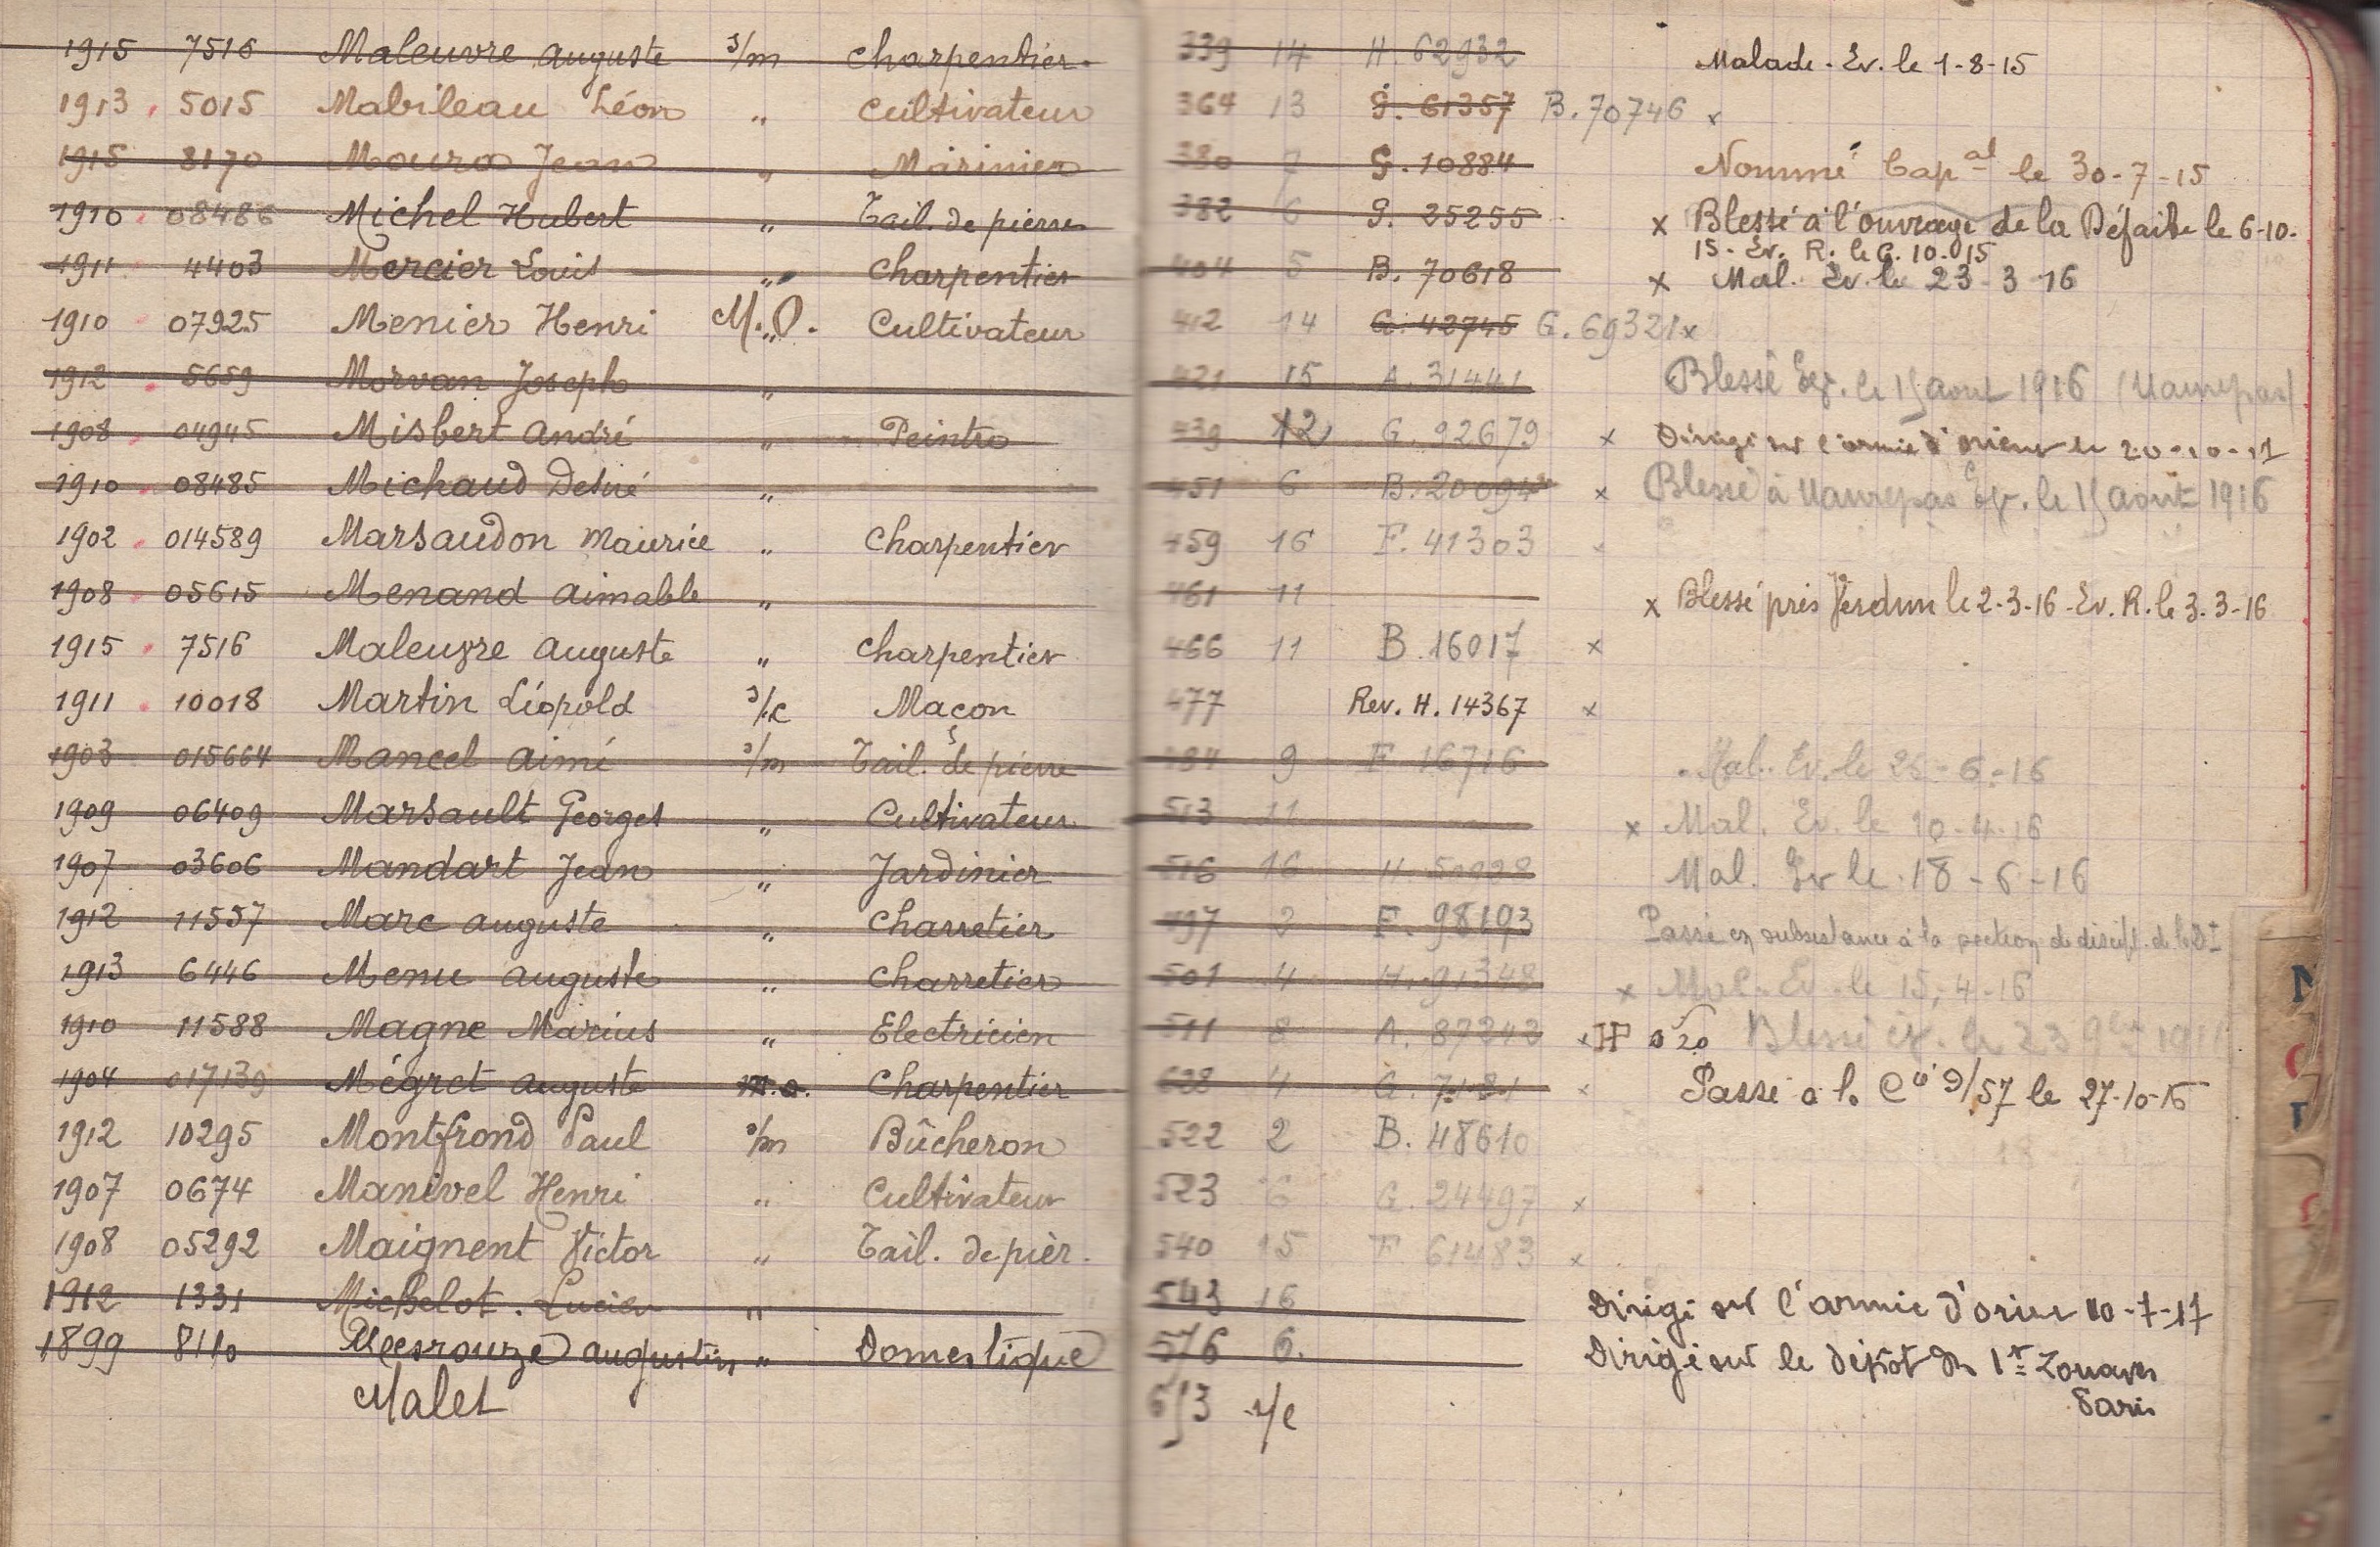 1915 7516 Maleuvre Auguste s/m Charpentier 339 14 H. 62932 Malade. Ev. le 1-8-15
1913 5015 Mabileau Léon " Cultivateur 364 13 G. 61357 B. 70746 x
1915 8170 Moura Jean " Marinier 380 7 G. 10884 Nommé Cap al le 30-7-15
1910 08486 Michel Hubert " Tail. de pierre 382 6 G. 25255 x Blessé à l'ouvrage de la Défaite le 6-10-
15- Ev. R. le 6. 10. 15
1911 4403 Mercier Louis " Charpentier 404 5 B. 70618 x Mal. Ev. le 23-3-16
1910 07925 Menier Henri M.O. " Cultivateur 412 14 G. 42745 G. 69321 x
1912 5659 Morvan Joseph " 421 15 A. 31441 Blessé Ev. le 15 aout 1916 (Maurepas)
1908 04945 Misbert André " Peintre 439 12 G. 92679 x Dirigé sur l'armée d'orient le 20-10-17
1910 08485 Michaud Desiré " 451 6 B. 20094 x Blessé à Maurepas Ev. le 15 août 1916
1902 014589 Marsaudon Maurice " Charpentier 459 16 F. 41303 x
1908 05615 Menand Aimable " 461 11 x Blessé près Verdun le 2-3-16- Ev. R. le 3. 3-16
1915 7516 Maleuvre Auguste " Charpentier 466 11 B. 16017 x
1911 10018 Martin Léopold s/c Maçon 477 Rev. H. 14367 x
1903 015664 Mancel Aimé s/m Tail. de pierre 484 9 F 16716 Mal. Ev. le 25-6-16
1909 06409 Marsault Georges " Cultivateur 513 11 x Mal. Ev. le 10-4-16
1907 03606 Mandart Jean " Jardinier 516 16 Mal. Ev le 18-6-16
1912 11557 Marc Auguste " Charretier 497 2 F. 98193 Passé en subsistance à la section de discipl. de la D.
1913 6446 Menu Auguste " Charretier 501 4 H. 91348 x Mal. Ev. le 15-4-16
1910 11588 Magne Marius " Electricien 511 8 A. 87242 x Blessé Ev. le 23
1904 017139 Mégret Auguste m.o. Charpentier 628 4 G. 7181 x Passé à la Cie 9/57 le 27-10-16
1912 10295 Montfrond Paul s/m Bûcheron 522 2 B. 48610
1907 0674 Manivel Henri " Cultivateur 523 6 G. 24497 x
1908 05292 Maignent Victor " Tail. de pièr. 540 15 F 61483 x
1912 1331 Michelot. Lucien " 543 16 Dirigé sur l'armée d'orien 10-7-17
1899 8110 Augustin " Domestique 576 6. Dirigé sur le dépôt du 1er Zouaves
Paris
Malet 613 s/c
N